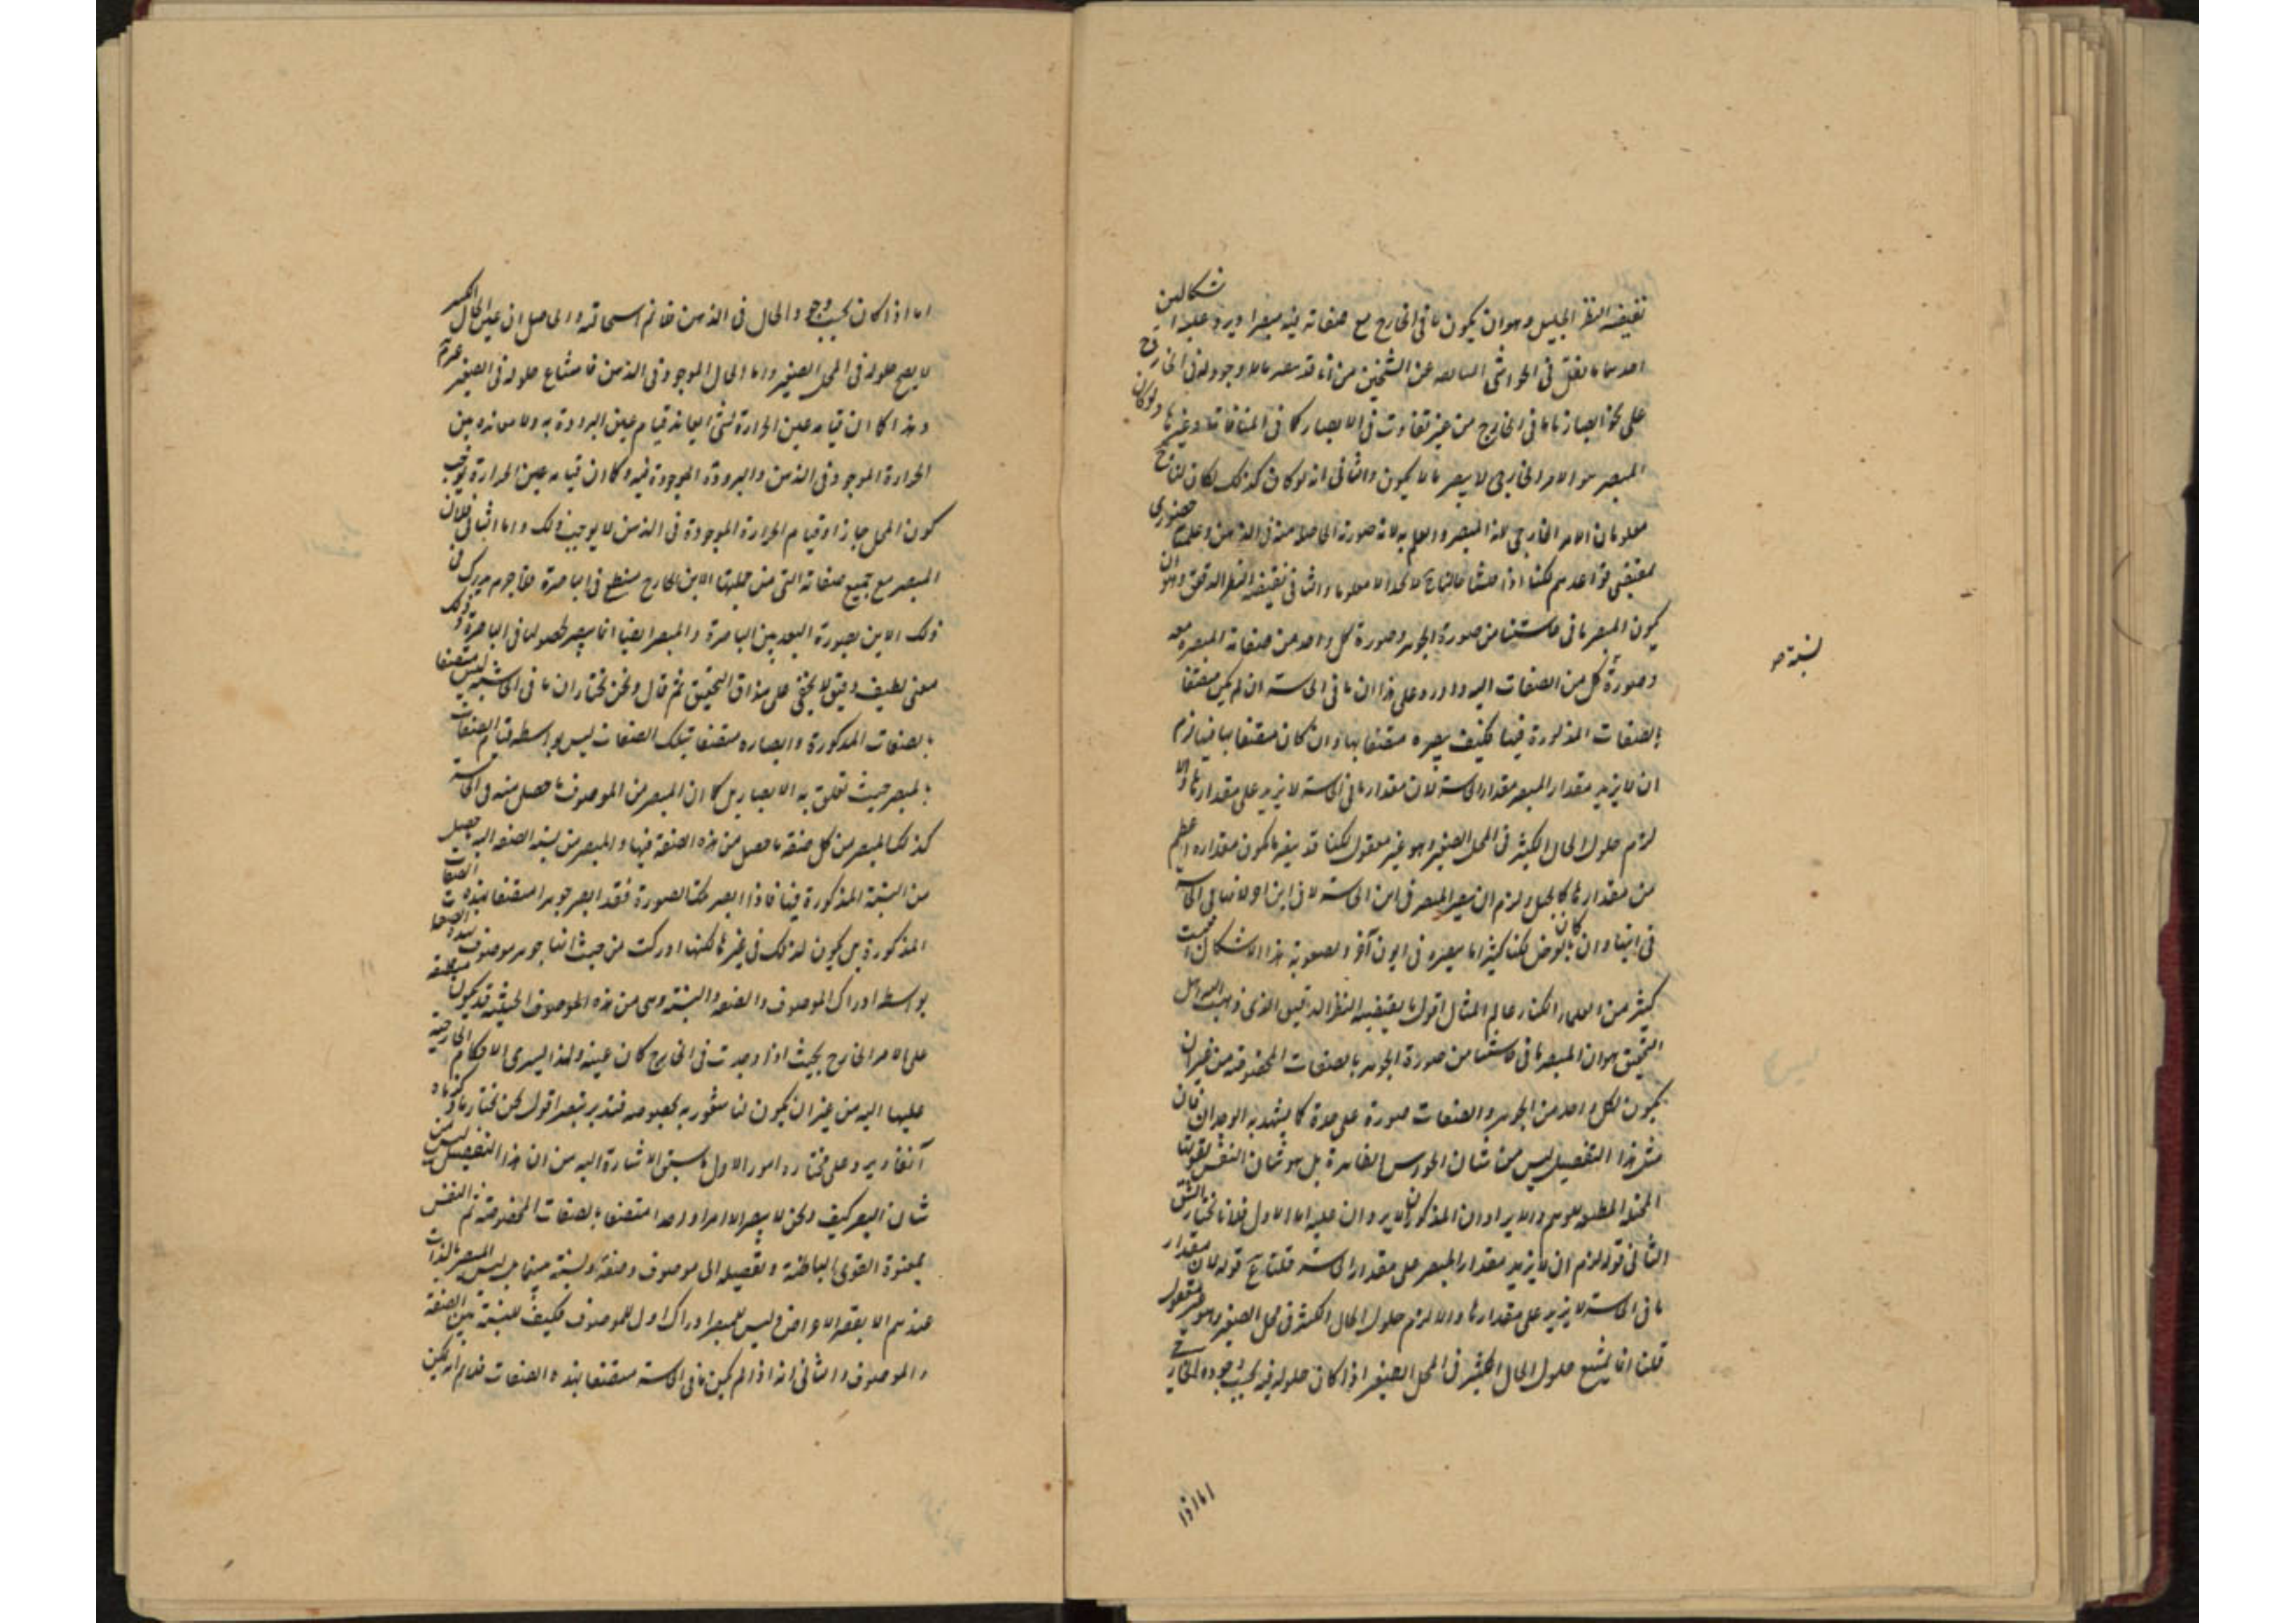 يقتضيه النظر الجليل وهو ان يكون ما في الخارج مع صفاته فيه مبصرا ويرد عليه اشكالين
احدهما ما نقل في الحواشي السابقه عن الشيخين من انه قد يبصر ما لا وجود له في الخارج
على نحو ابصارنا ما في الخارج من غير تفاوت في الابصار كما في المنافات وغيرها ولو كان
المبصر هو الامر الخارجي لا يبصر ما لا يكون والثاني انه لو كان كذلك لكان لنا ح
معلومان الامر الخارجي لانه المبصر والعلم به لانه صورته الحاصلة منه في الذهن وعلم حضوري
بمقتضى قواعدهم لكنا اذا فتشنا حالنا ح لا نجد الا معلوما والثاني يقتضيه النظر الدقيق وهو ان
يكون المبصر ما في حاستنا من صورة الجوهر وصورة كل واحد من صفاته المبصرة معه
وصورة كل من الصفات اليه واورد على هذا ان ما في الحاسة ان لم يكن متصفا
بالصفات المذكورة فينا فكيف يبصره متصفا بها وان كان متصفا بها فيلزم
ان لا يزيد مقدار المبصر مقدار الحاسة لان مقدار ما في الحاسة لا يزيد على مقدارها والا
لزم حلول الحال الكثير في المحل الصغير وهو غير معقول لكنا قد يبصر ما يكون مقداره اعظم
من مقدارها كالجبل ولزم ان يبصر المبصر في اين الحاسة لا في اين اخر لانها في الحاسة
في اينها وان كان بالعرض لكنا كثيرا ما يبصره في ايون آخر ولصعوبة هذا الاشكال
كثير من العلماء انكار عالم المثال اقول ما يقتضيه النظر الدقيق الذي ذهب اليه اهل
التحقيق هو ان المبصر ما في حاستنا من صورة الجوهر بالصفات المخصوصة من غير ان
يكون لكل واحد من الجوهر والصفات صورة على حدة كما يشهد به الوجدان فان
مثل هذا التفصيل ليس من شان الحواس الظاهرة بل هو شان النفس بقوتها
المطيعة للوهم والايرادان المذكوران لا يردان عليه اما الاول فلانا نختار الشق
الثاني قوله لزم ان لا يزيد مقدار المبصر على مقدار الحاسة قلنا ح قوله لان مقدار
ما في الحاسة لا يزيد على مقدارها والا لزم حلول الحال الكثير في محل الصغير وهو غير معقول
قلنا انما يمتنع حلول الحال الكثير في المحل الصغير اذا كان حلوله فيه بحسب وجوده الخارجي
اما اذا
نسبة صح
اما اذا كان بحسب وجود الحال في الذهن فانما استحالته والحاصل ان عين الحال الكبير
لا يصح حلوله في المحل الصغير واما الحال الموجود في الذهن فامتناع حلوله في الصغير
وهذا كما ان قيام عين الحرارة لشئ يعاند قيام عين البرودة به ولا معاندة بين
الحرارة الموجودة في الذهن والبرودة الموجودة فيه وكما ان قيام عين الحرارة يوجب
كون المحل حارا وقيام الحرارة الموجودة في الذهن لا يوجب ذلك واما الثاني فلان
المبصر مع جميع صفاته التي من جملتها الاين الخارج منطبع في الباصرة فلا جرم يدرك
ذلك الاين بصورة البعد بين الباصرة والمبصر ايضا انما يبصر لحصولها في الباصرة وذلك
معنى لطيف دقيق لا يخفى على مذاق التحقيق ثم قال ونحن نختار ان ما في الحاسة ليس متصفا
بالصفات المذكورة وابصاره متصفا بتلك الصفات ليس بواسطه قيام الصفات
بالمبصر حيث تعلق به الابصار بل كما ان المبصر من الموصوف ما حصل منه في الحاسة
كذلك المبصر من كل صفة ما حصل من هذه الصفة فيها والمبصر من نسبة الصفه اليه ما حصل
من النسبة المذكورة فينا فاذا ابصر هكنا الصورة فقد ابصر جوهرا متصفا بهذه الصفات
المذكورة بل يكون لذلك في غيرها لكنها ادركت من حيث انها جوهر موصوف بهذه الصفات
بواسطه ادراك الموصوف والصفه والنسبة وهي من هذه الموصوف الحيثية قد يكون منطبقة
على الامر الخارج بحيث اذا وجدت في الخارج كان عينه ولهذا يسري الاحكام الخارجية
عليها اليه من غير ان يكون لنا شعور به بخصوصه فتدبر تبصر اقول نحن نختار ما ذكرناه
آنفا ويرد على مختاره امور الاول ما سبق الاشارة اليه من ان هذا التفصيل ليس من
شان البصر كيف ونحن لا يبصر الا امرا واحدا متصفا بالصفات المخصوصة ثم النفس
بمعونة القوى الباطنة وتفصيله الى موصوف وصفة ونسبة بينهما ليس المبصر بالذات
عندهم الا بعض الاعراض وليس للبصر ادراك اول للموصوف فكيف للنسبة بين الصفة
والموصوف والثاني انه اذا لم يكن ما في الحاسة متصفا بهذه الصفات فلم انه لم يكن